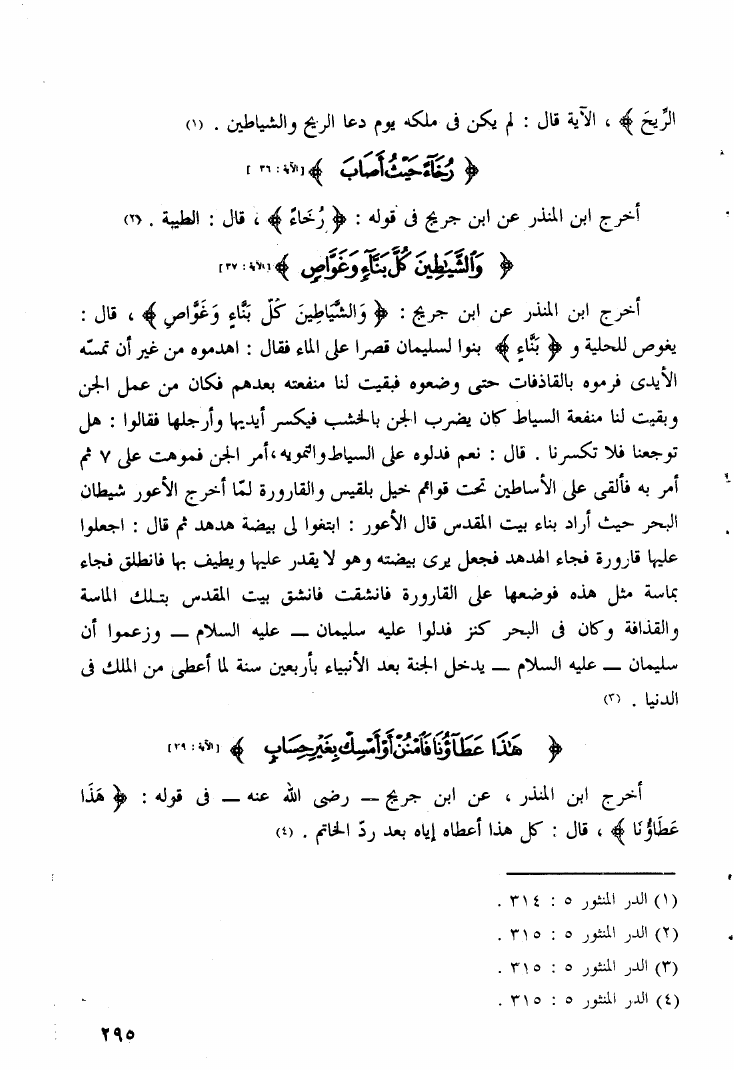 الرِّيحَ ﴾ ، الآية قال : لم يكن فى ملكه يوم دعا الريح والشياطين . (١)
﴿ رُخَآءً حَيْثُ أَصَابَ ﴾ [الآية : ٣٦ ]
أخرج ابن المنذر عن ابن جريج فى قوله : ﴿ رُخَاءً ﴾ ، قال : الطيبة . (٢)
﴿ وَٱلشَّيَٰطِينَ كُلَّ بَنَّآءٍ وَغَوَّاصٍ ﴾ [الآية : ٣٧ ]
أخرج ابن المنذر عن ابن جريج : ﴿ وَالشَّيَاطِينَ كُلّ بَنَّاءٍ وَغَوَّاصٍ ﴾ ، قال :
يغوص للحلية و ﴿ بَنَّاءٍ ﴾ بنوا لسليمان قصرا على الماء فقال : اهدموه من غير أن تمسّه
الأيدى فرموه بالقاذفات حتى وضعوه فبقيت لنا منفعته بعدهم فكان من عمل الجن
وبقيت لنا منفعة السياط كان يضرب الجن بالخشب فيكسر أيديها وأرجلها فقالوا : هل
توجعنا فلا تكسرنا . قال : نعم فدلوه على السياط والتمويه ، أمر الجن فموهت على ٧ ثم
أمر به فألقى على الأساطين تحت قوائم خيل بلقيس والقارورة لمّا أخرج الأعور شيطان
البحر حيث أراد بناء بيت المقدس قال الأعور : ابتغوا لى بيضة هدهد ثم قال : اجعلوا
عليها قارورة فجاء الهدهد فجعل يرى بيضته وهو لا يقدر عليها ويطيف بها فانطلق فجاء
بماسة مثل هذه فوضعها على القارورة فانشقت فانشق بيت المقدس بتلك الماسة
والقذافة وكان فى البحر كنز فدلوا عليه سليمان – عليه السلام – وزعموا أن
سليمان – عليه السلام – يدخل الجنة بعد الأنبياء بأربعين سنة لما أعطى من الملك فى
الدنيا . (٣)
﴿ هَٰذَا عَطَآؤُنَا فَٱمْنُنْ أَوْ أَمْسِكْ بِغَيْرِ حِسَابٍ ﴾ [الآية : ٣٩ ]
أخرج ابن المنذر ، عن ابن جريج – رضى الله عنه – فى قوله : ﴿ هَذَا
عَطَاؤُنَا ﴾ ، قال : كل هذا أعطاه إياه بعد ردّ الخاتم . (٤)
(١) الدر المنثور ٥ : ٣١٤ .
(٢) الدر المنثور ٥ : ٣١٥ .
(٣) الدر المنثور ٥ : ٣١٥ .
(٤) الدر المنثور ٥ : ٣١٥ .
٢٩٥